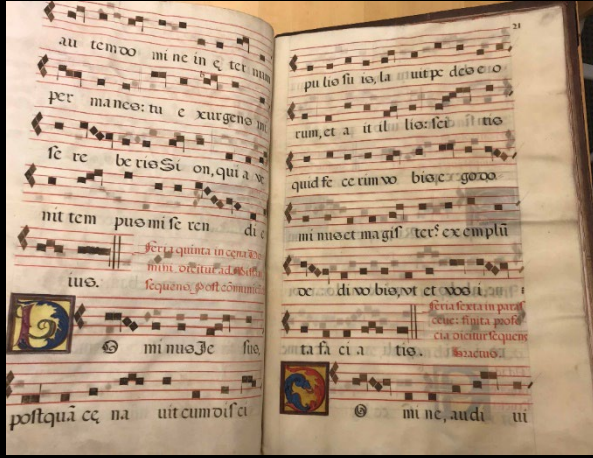 au tem do mi ne in ę ter num
per ma nes: tu e xurgens mi
se re be ris Si on, qui a ve
nit tem pus mi se ren di e
ius.
Feria quinta in cena Do
mini dicitur ad Missā
sequens, post cōmunic
D O mi nus Je sus,
postquā cę na uit cum disci
21
pu lis su is, la uit pe des e o
rum, et a it il lis: sci tis
quid fe ce rim vo bis e go do
mi nus et magis ter? ex emplū
de di vo bis, vt et vos i
ta fa ci a tis.
Feria sexta in paras
ceue: finita profe
cia dicitur sequens
tractus.
D O mi ne, au di ui